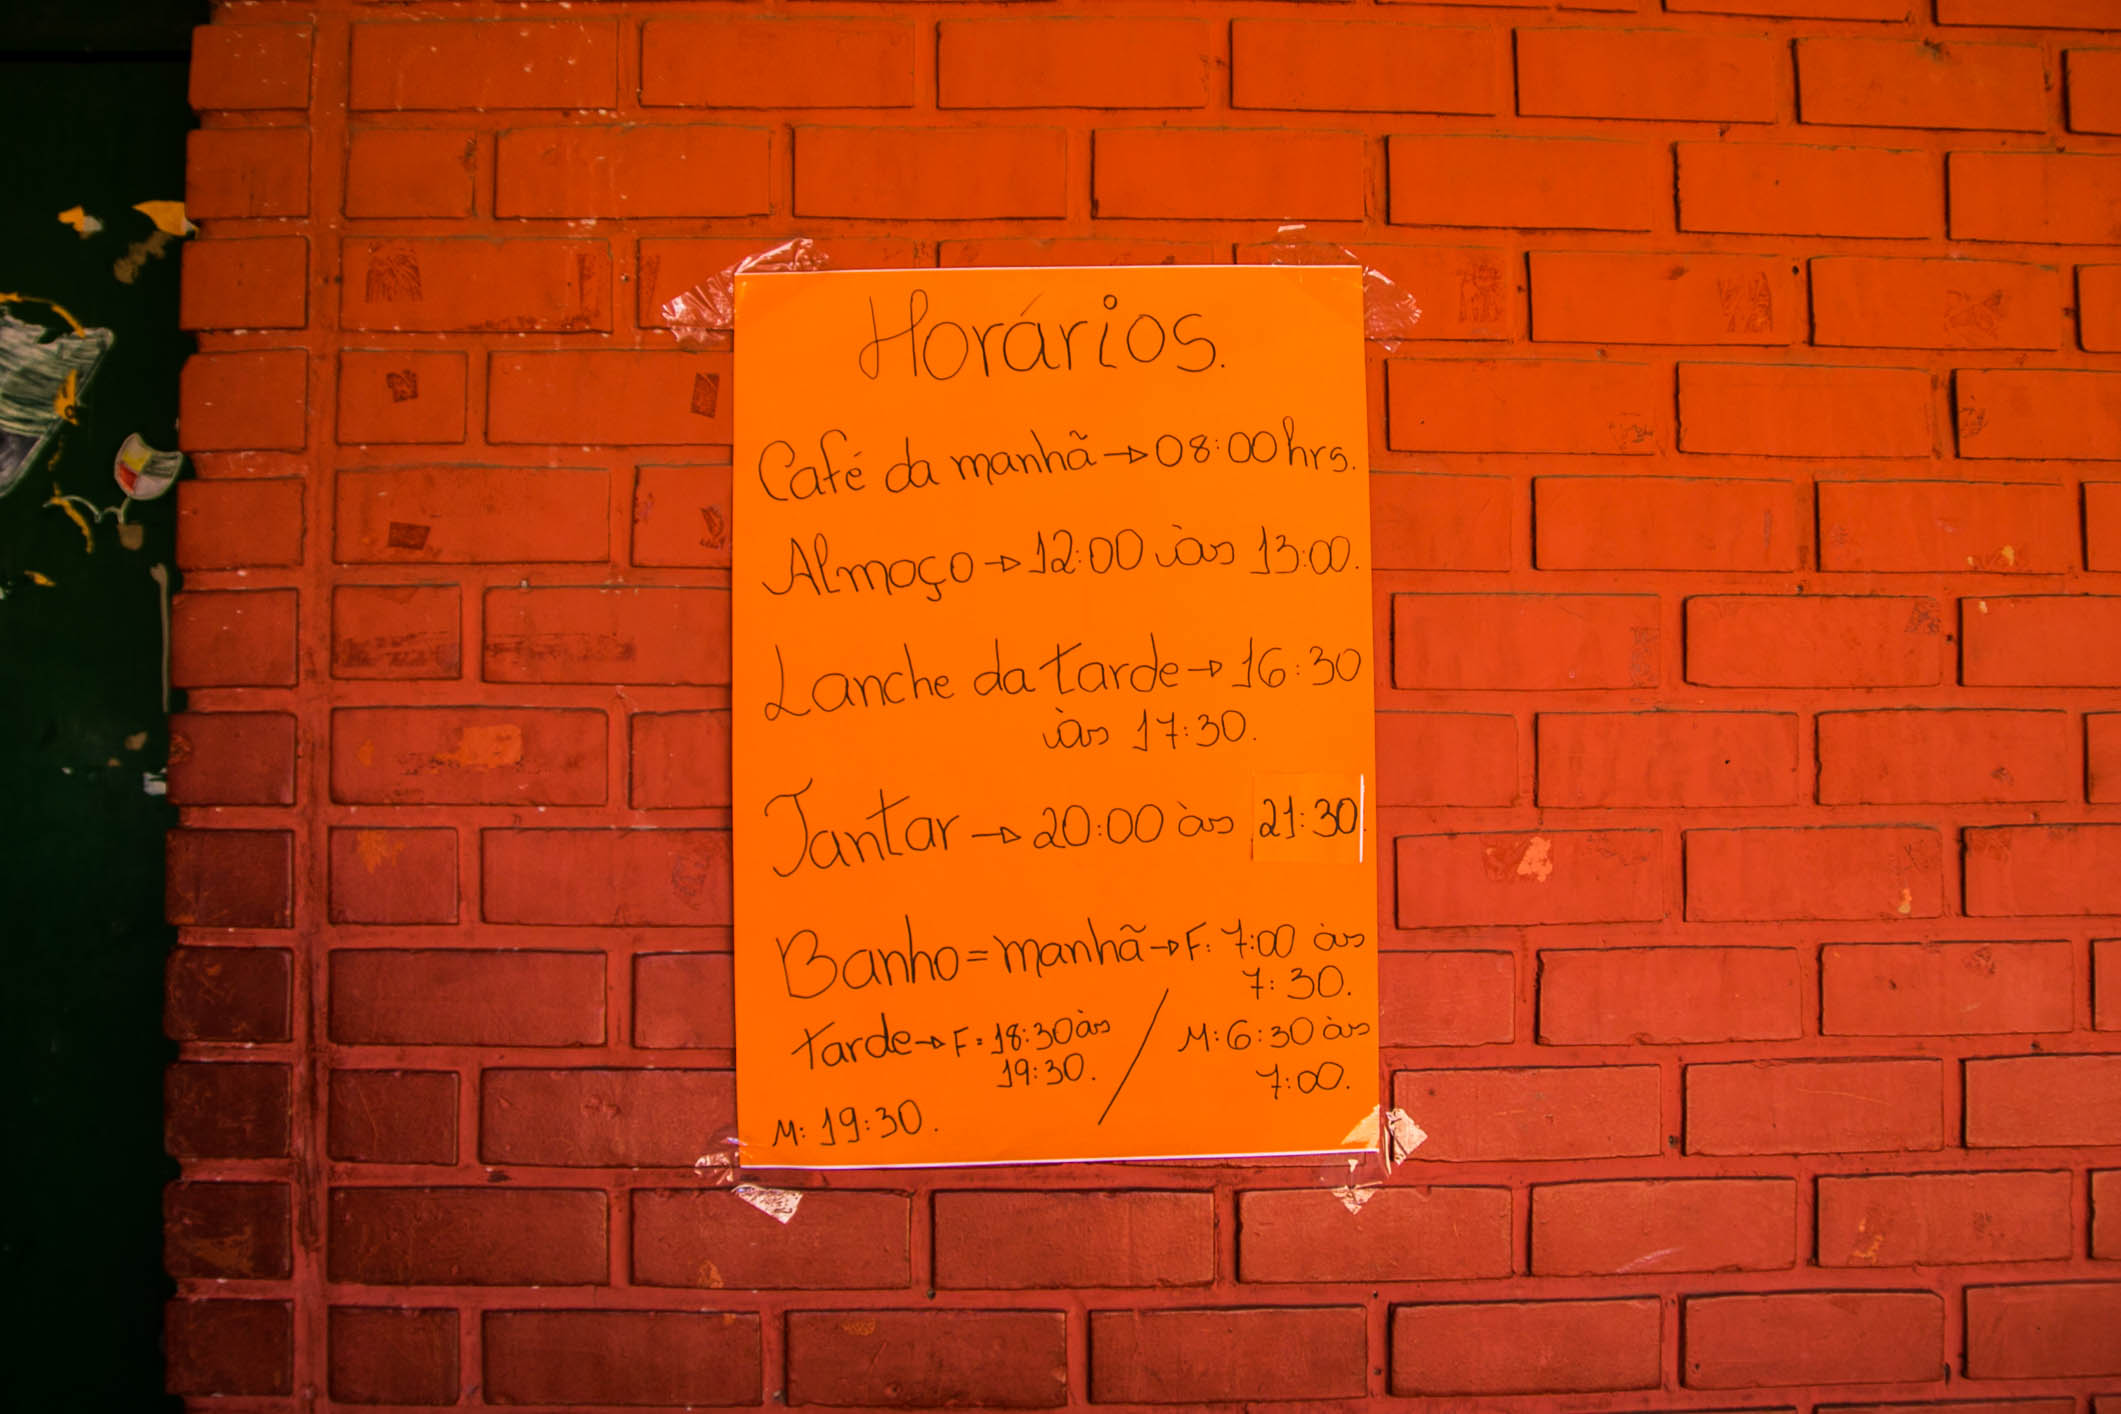 Horários.
Café da manhã → 08:00 hrs.
Almoço → 12:00 às 13:00.
Lanche da tarde → 16:30
às 17:30.
Jantar → 20:00 às 21:30
Banho = manhã → F: 7:00 às
7:30.
M: 6:30 às
7:00.
tarde → F: 18:30 às
19:30.
M: 19:30.